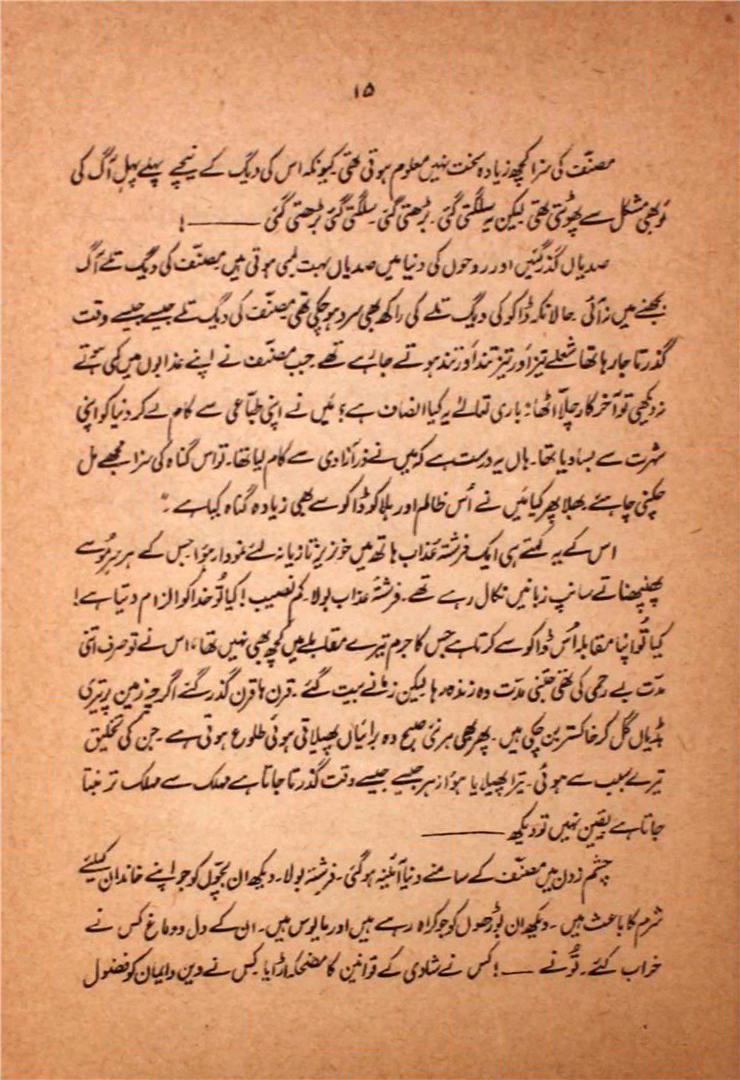 ۱۵
مصنّف کی سزا کچھ زیادہ سخت نہیں معلوم ہوتی تھی کیونکہ اس کی دیگ کے نیچے پہلے پہل آگ کی
لَو بھی مشکل سے پھوٹتی تھی لیکن یہ سلگتی گئی۔ بڑھتی گئی۔ سلگتی گئی بڑھتی گئی ——— !
صدیاں گذر گئیں اور روحوں کی دنیا میں صدیاں بہت لمبی ہوتی ہیں مصنّف کی دیگ تلے آگ
بجھنے میں نہ آئی حالانکہ ڈاکو کی دیگ تلے کی راکھ بھی سرد ہو چکی تھی مصنّف کی دیگ تلے جیسے جیسے وقت
گذرتا جا رہا تھا شعلے تیز اور تیز تند اور تند ہوتے جا رہے تھے جب مصنّف نے اپنے عذابوں میں کمی ہوتے
نہ دیکھی تو آخر کار چلّا اٹھا: باری تعالےٰ یہ کیا انصاف ہے؟ مَیں نے اپنی طبّاعی سے کام لے کر دنیا کو اپنی
شہرت سے بسا دیا تھا۔ ہاں یہ درست ہے کہ میں نے ذرا آزادی سے کام لیا تھا۔ تو اس گناہ کی سزا مجھے مل
چکنی چاہئے بھلا پھر کیا مَیں نے اُس ظالم اور ہلاکو ڈاکو سے بھی زیادہ گناہ کیا ہے۔"
اس کے یہ کہتے ہی ایک فرشتۂ عذاب ہاتھ میں خونریز تازیانہ لئے نمودار ہؤا جس کے ہر ہر مُو سے
پھنپھناتے سانپ زبانیں نکال رہے تھے۔ فرشتۂ عذاب بولا۔ کم نصیب! کیا تُو خدا کو الزام دیتا ہے!
کیا تُو اپنا مقابلہ اُس ڈاکو سے کرتا ہے جس کا جرم تیرے مقابلے میں کچھ بھی نہیں تھا، اس نے تو صرف اتنی
مدّت بے رحمی کی تھی جتنی مدّت وہ زندہ رہا لیکن زمانے بیت گئے۔ قرن ہا قرن گذر گئے اگرچہ زمین پر تیری
ہڈیاں گل کر خاکستر بن چکی ہیں۔ پھر بھی ہر نئی صبح وہ برائیاں پھیلاتی ہوئی طلوع ہوتی ہے۔ جن کی تخلیق
تیرے سبب سے ہوئی۔ تیرا پھیلایا ہؤا زہر جیسے جیسے وقت گذرتا جاتا ہے مہلک سے مہلک تر بنتا
جاتا ہے یقین نہیں تو دیکھ ———
چشم زدن میں مصنّف کے سامنے دنیا آئینہ ہو گئی۔ فرشتہ بولا۔ دیکھ ان بچّوں کو جو اپنے خاندان کیلئے
شرم کا باعث ہیں۔ دیکھ ان بوڑھوں کو جو کراہ رہے ہیں اور مایوس ہیں۔ ان کے دل و دماغ کس نے
خراب کئے۔ تُو نے —! کس نے شادی کے قوانین کا مضحکہ اڑایا کس نے دین و ایمان کو فضول